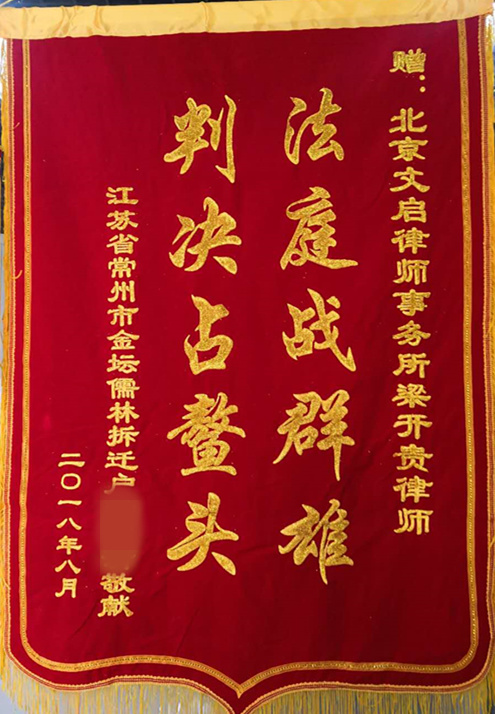 赠：北京文启律师事务所梁开贵律师
法庭战群雄
判决占鳌头
江苏省常州市金坛儒林拆迁户 敬献
二〇一八年八月